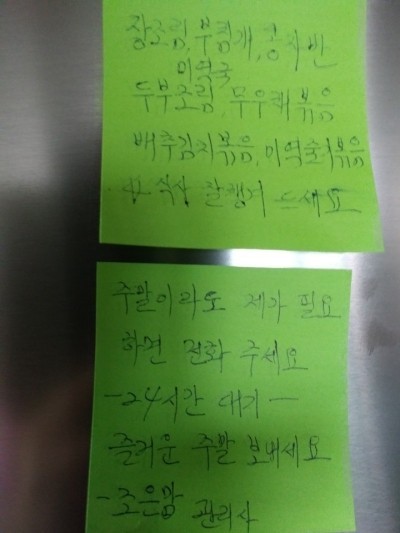 장조림, 부침개, 콩자반
미역국
두부조림, 무우채볶음
배추김치볶음, 미역줄거볶음
식사 잘챙겨 드세요
주말이라도 제가 필요
하면 전화 주세요
-24시간 대기-
즐거운 주말 보내세요
-조은맘 관리사